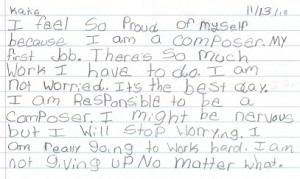 Katie 11/13/18
I feel So Proud of myself
because I am a composer. MY
first Job. There's So much
Work I have to do. I am
not worried. Its the best day.
I am Responsible to be a
composer. I might be nervous
but I Will Stop Worrying. I
am really going to work hard. I am
not giving up No matter what.